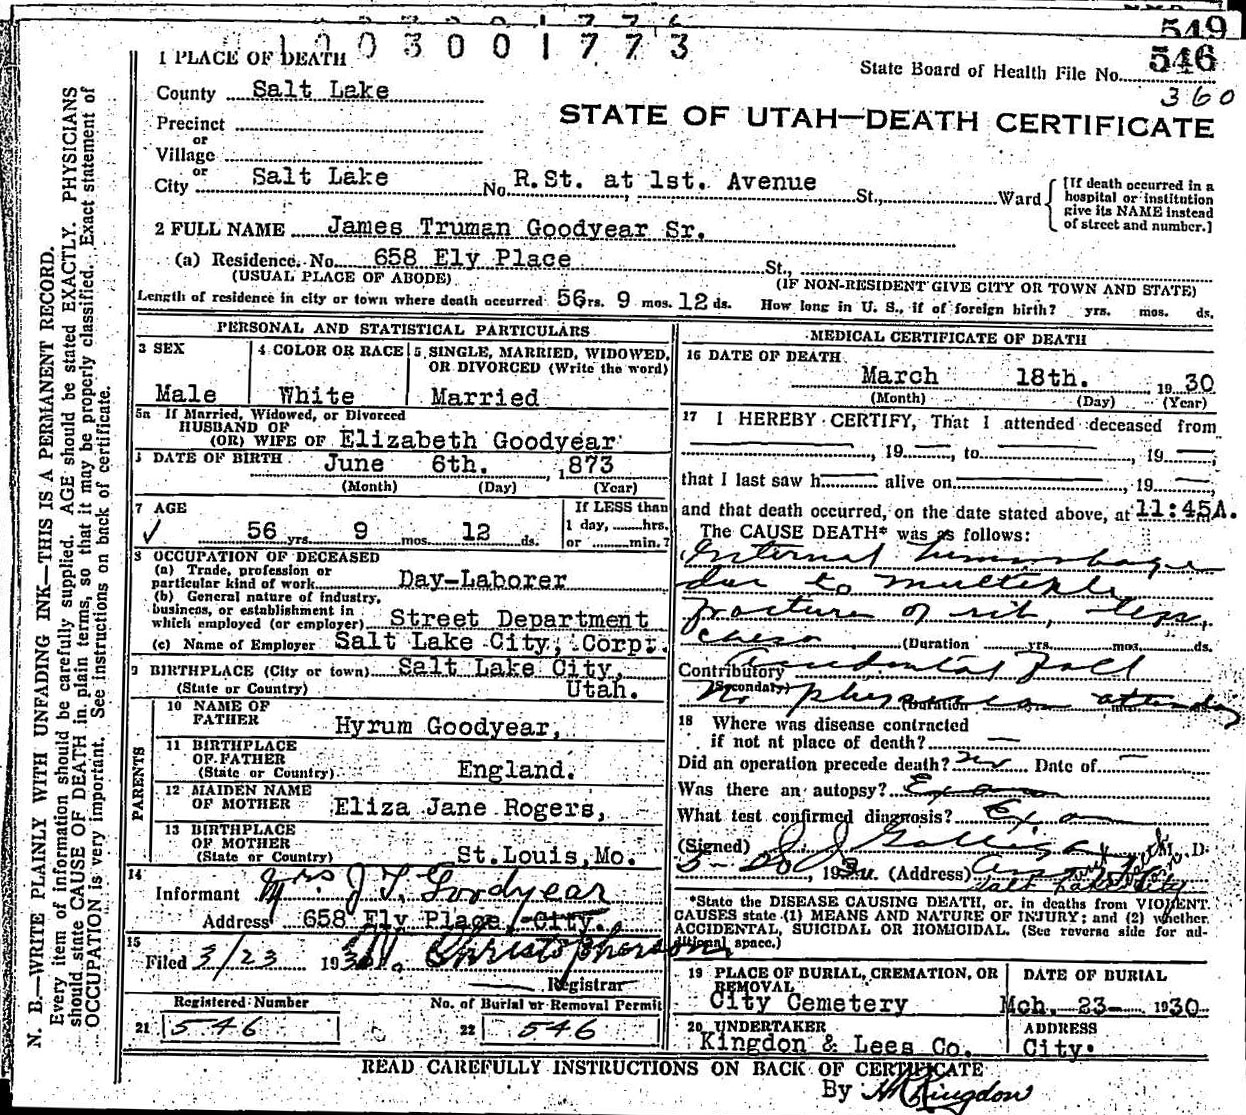 549
1003001773
546
State Board of Health File No.
360
1 PLACE OF DEATH
County Salt Lake
STATE OF UTAH—DEATH CERTIFICATE
Precinct
or
Village
or
City Salt Lake No. R.St. at 1st. Avenue St., Ward
[If death occurred in a hospital or institution give its NAME instead of street and number.]
2 FULL NAME James Truman Goodyear Sr.
(a) Residence. No. 658 Ely Place St.,
(USUAL PLACE OF ABODE) (IF NON-RESIDENT GIVE CITY OR TOWN AND STATE)
Length of residence in city or town where death occurred 56 yrs. 9 mos. 12 ds. How long in U. S., if of foreign birth? yrs. mos. ds.
PERSONAL AND STATISTICAL PARTICULARS
3 SEX
Male
4 COLOR OR RACE
White
5 SINGLE, MARRIED, WIDOWED, OR DIVORCED (Write the word)
Married
5a If Married, Widowed, or Divorced
HUSBAND OF
(OR) WIFE OF Elizabeth Goodyear
DATE OF BIRTH June 6th. , 1873
(Month) (Day) (Year)
7 AGE
56 yrs. 9 mos. 12 ds.
If LESS than
1 day, hrs.
or min.?
8 OCCUPATION OF DECEASED
(a) Trade, profession or
particular kind of work Day-Laborer
(b) General nature of industry,
business, or establishment in
which employed (or employer) Street Department
(c) Name of Employer Salt Lake City, Corp.
9 BIRTHPLACE (City or town) Salt Lake City,
(State or Country) Utah.
PARENTS
10 NAME OF
FATHER Hyrum Goodyear,
11 BIRTHPLACE
OF FATHER
(State or Country) England.
12 MAIDEN NAME
OF MOTHER Eliza Jane Rogers,
13 BIRTHPLACE
OF MOTHER
(State or Country) St.Louis,Mo.
14
Informant Mrs J T Goodyear
Address 658 Ely Place, City.
15
Filed 3/23 1930 Christopherson
Registrar
Registered Number
21 546
No. of Burial or Removal Permit
22 546
MEDICAL CERTIFICATE OF DEATH
16 DATE OF DEATH
March 18th. 1930
(Month) (Day) (Year)
17 I HEREBY CERTIFY, That I attended deceased from
, 19 , to , 19 ;
that I last saw h alive on , 19 ,
and that death occurred, on the date stated above, at 11:45A.
The CAUSE DEATH* was as follows:
Internal hemorrhage
due to multiple
fracture of rib, legs,
chest
(Duration yrs. mos. ds.
Contributory Accidental Fall
(Secondary)
No physician attending
(Duration
18 Where was disease contracted
if not at place of death?
Did an operation precede death? No Date of
Was there an autopsy? Exam
What test confirmed diagnosis? Exam
(Signed) M. D.
, 19 (Address)
Salt Lake City
*State the DISEASE CAUSING DEATH, or, in deaths from VIOLENT
CAUSES state (1) MEANS AND NATURE OF INJURY; and (2) whether
ACCIDENTAL, SUICIDAL OR HOMICIDAL. (See reverse side for ad-
ditional space.)
19 PLACE OF BURIAL, CREMATION, OR
REMOVAL
City Cemetery
DATE OF BURIAL
Mch. 23- 1930
20 UNDERTAKER
Kingdon & Lees Co.
ADDRESS
City.
READ CAREFULLY INSTRUCTIONS ON BACK OF CERTIFICATE
By Kingdon
N. B.—WRITE PLAINLY WITH UNFADING INK—THIS IS A PERMANENT RECORD.
Every item of information should be carefully supplied. AGE should be stated EXACTLY. PHYSICIANS
should state CAUSE OF DEATH in plain terms, so that it may be properly classified. Exact statement of
OCCUPATION is very important. See instructions on back of certificate.